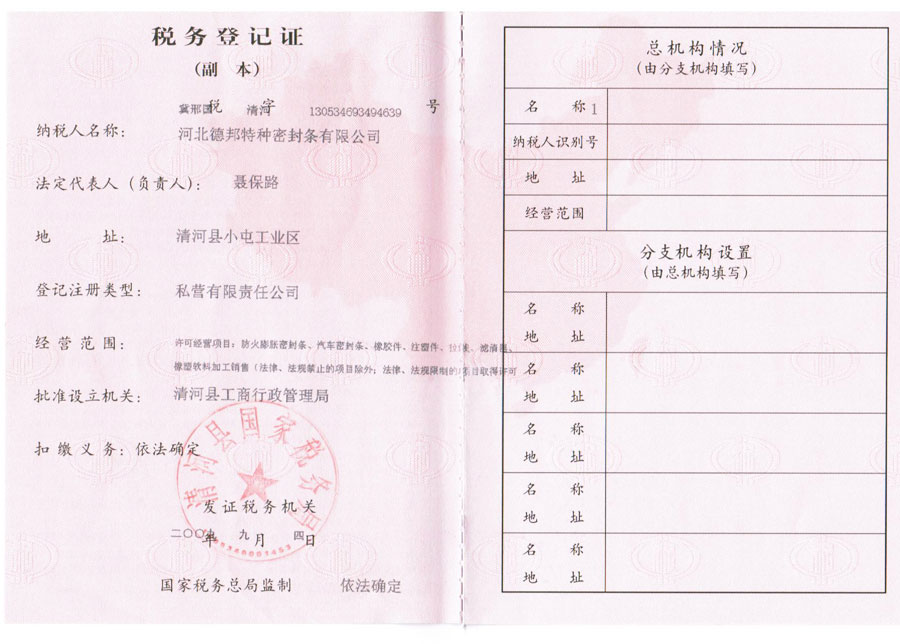 税务登记证
(副 本)
冀邢国 税 清河 字 130534693494639 号
纳税人名称: 河北德邦特种密封条有限公司
法定代表人(负责人): 聂保路
地 址: 清河县小屯工业区
登记注册类型: 私营有限责任公司
经营范围: 许可经营项目: 防火膨胀密封条、汽车密封条、橡胶件、注塑件、 滤清器、
橡塑软料加工销售 (法律、法规禁止的项目除外; 法律、法规限制的项目取得许可
批准设立机关: 清河县工商行政管理局
扣缴义务: 依法确定
清河县国家税务局
发证税务机关
二〇〇九年 九月 四日
国家税务总局监制 依法确定
总机构情况
(由分支机构填写)
名 称 1
纳税人识别号
地 址
经营范围
分支机构设置
(由总机构填写)
名 称
地 址
名 称
地 址
名 称
地 址
名 称
地 址
名 称
地 址